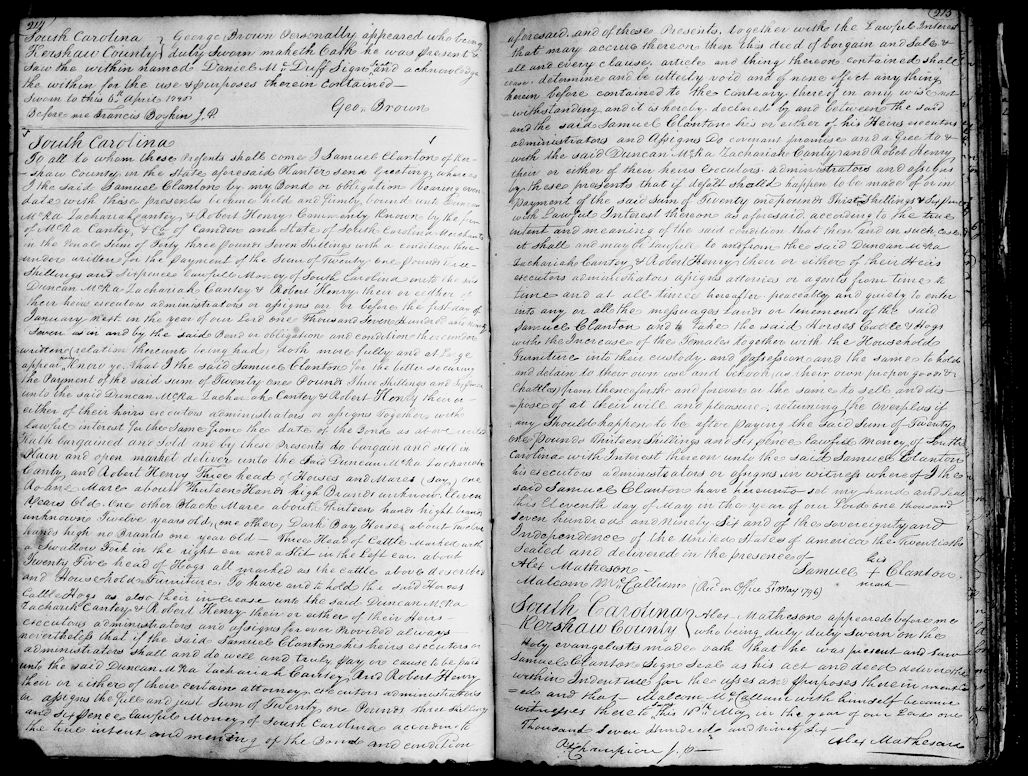 214
South Carolina } George Brown Personally appeared who being
Kershaw County } duly Sworn maketh Oath he was Present &
Saw the within named Daniel McDuff Sign and acknowledge
the within for the use & purposes therein Contained —
Sworn to this 6th April 1796
Before me Francis Boykin J.P. Geo. Brown
South Carolina
To all to whom these Presents shall come I Samuel Clanton of Ker-
-shaw County in the State aforesaid Planter send Greeting, whereas
I the said Samuel Clanton by my Bond or obligation bearing even
date with these presents became held and firmly bound unto Duncan
McRa Zachariah Cantey, & Robert Henry Commonly Known by the firm
of McRa Cantey, & Co of Camden and State of South Carolina Merchants
in the Penale Sum of Forty three pounds Seven Shillings with a condition there-
under written for the payment of the Sum of Twenty one pounds three
Shillings and Sixpence lawfull Money of South Carolina unto the said
Duncan McRa Zachariah Cantey & Robert Henry their or either of
their heirs executors administrators or assigns on or before the first day of
January next in the year of our Lord one Thousand Seven hundred and ninety
Seven as in and by the said Bond or obligation and condition thereunder
written (relation thereunto being had) doth more fully and at Large
appear Know ye that I the said Samuel Clanton for the better securing
the Payment of the said sum of Twenty one Pounds three Shillings and Sixpence
unto the said Duncan McRa Zachariah Cantey & Robert Henry their or
either of their heirs executors administrators or assigns together with
Lawful interest for the Same from the date of the Bond as above written
Hath bargained and Sold and by these Presents do bargain and sell in
Plain and open market deliver unto the said Duncan McRa Zachariah
Canty, and Robert Henry Three head of Horses and Mares (say) one
Roane Mare about Thirteen Hands high Brand unknown Eleven
years Old. One other Black Mare about thirteen hands high brand
unknown Twelve years old, one other Dark Bay Horse about twelve
hands high no Brands one year old — Three Head of Cattle Marked with
a Swallow Fork in the right ear and a Slit in the Left ear. about
Twenty Five head of Hogs all marked as the cattle above described
and Household Furniture. To have and to hold the said Horses
Cattle Hogs as also their increase unto the said Duncan McRa
Zachariah Cantey & Robert Henry their or either of their Heirs
executors administrators and assigns forever Provided always
nevertheless that if the said Samuel Clanton his heirs executors or
administrators shall and do well and truly pay or cause to be paid
unto the said Duncan McRa Zachariah Cantey And Robert Henry
their or either of their certain attorney executors administrators
or assigns the full and just Sum of Twenty one Pounds three shillings
and Six pence lawful Money of South Carolina according to
the true intent and meaning of the Bond and condition
215
aforesaid and of these Presents, together with the Lawful Interest
that may accrue thereon then this deed of bargain and Sale &
all and every clause, article and thing thereon contained shall
cease, determine and be utterly void and of none effect any thing
herein before contained to the Contrary thereof in any wise not
-withstanding and it is hereby declared by and between the said
and the said Samuel Clanton his or either of his Heirs executors
administrators and Assigns Do covenant promise and agree to &
with the said Duncan McRa Zachariah Canty and Robert Henry
their or either of their heirs Executors administrators and assigns
by these presents that if default should happen to be made of or in
Payment of the said Sum of Twenty one pounds Shillings & Sixpence
with Lawful Interest thereon as aforesaid according to the true
intent and meaning of the said condition that then and in such case
it shall and may be lawfull to and from the said Duncan McRa
Zachariah Cantey, & Robert Henry their or either of their Heirs
executors administrators assigns attornies or agents from time to
time and at all times hereafter peaceably and quietly to enter
into any or all the messuages Lands or tenements of the said
Samuel Clanton and to take the said Horses Cattle & Hogs
with the Increase of the Females together with the Household
Furniture into their custody and possession and the same to hold
and detain to their own use and behoof as their own proper goods &
Chattles from thenceforth and forever or the same to sell and dis-
-pose of at their will and pleasure, returning the Overplus if
any Should happen to be after paying the Said Sum of Twenty
one Pounds thirteen Shillings and Six pence lawful money of South
Carolina with Interest thereon unto the said Samuel Clanton
his executors administrators or assigns in witness whereof I the
said Samuel Clanton have hereunto set my hand and Seal
this Eleventh day of May in the year of our Lord one thousand
Seven hundred and Ninety Six and of the Sovereignty and
Independence of the United States of america the Twentieth
Sealed and delivered in the presence of his
Alex Matheson — Samuel + Clanton
Malcom McCallum (Recd in Office 31 May 1796) mark
South Carolina } Alex Matheson appeared before me
Kershaw County } who being duly duly Sworn on the
Holy evangelists made oath that he was present and saw
Samuel Clanton Sign Seal as his act and deed deliver the
within Indenture for the uses and purposes therein mention
-ed and that Malcom McCallum with himself became
witnesses thereto this 18th May in the year of our Lord one
thousand Seven hundred and Ninety Six —
Champion J.P. — Alex Matheson